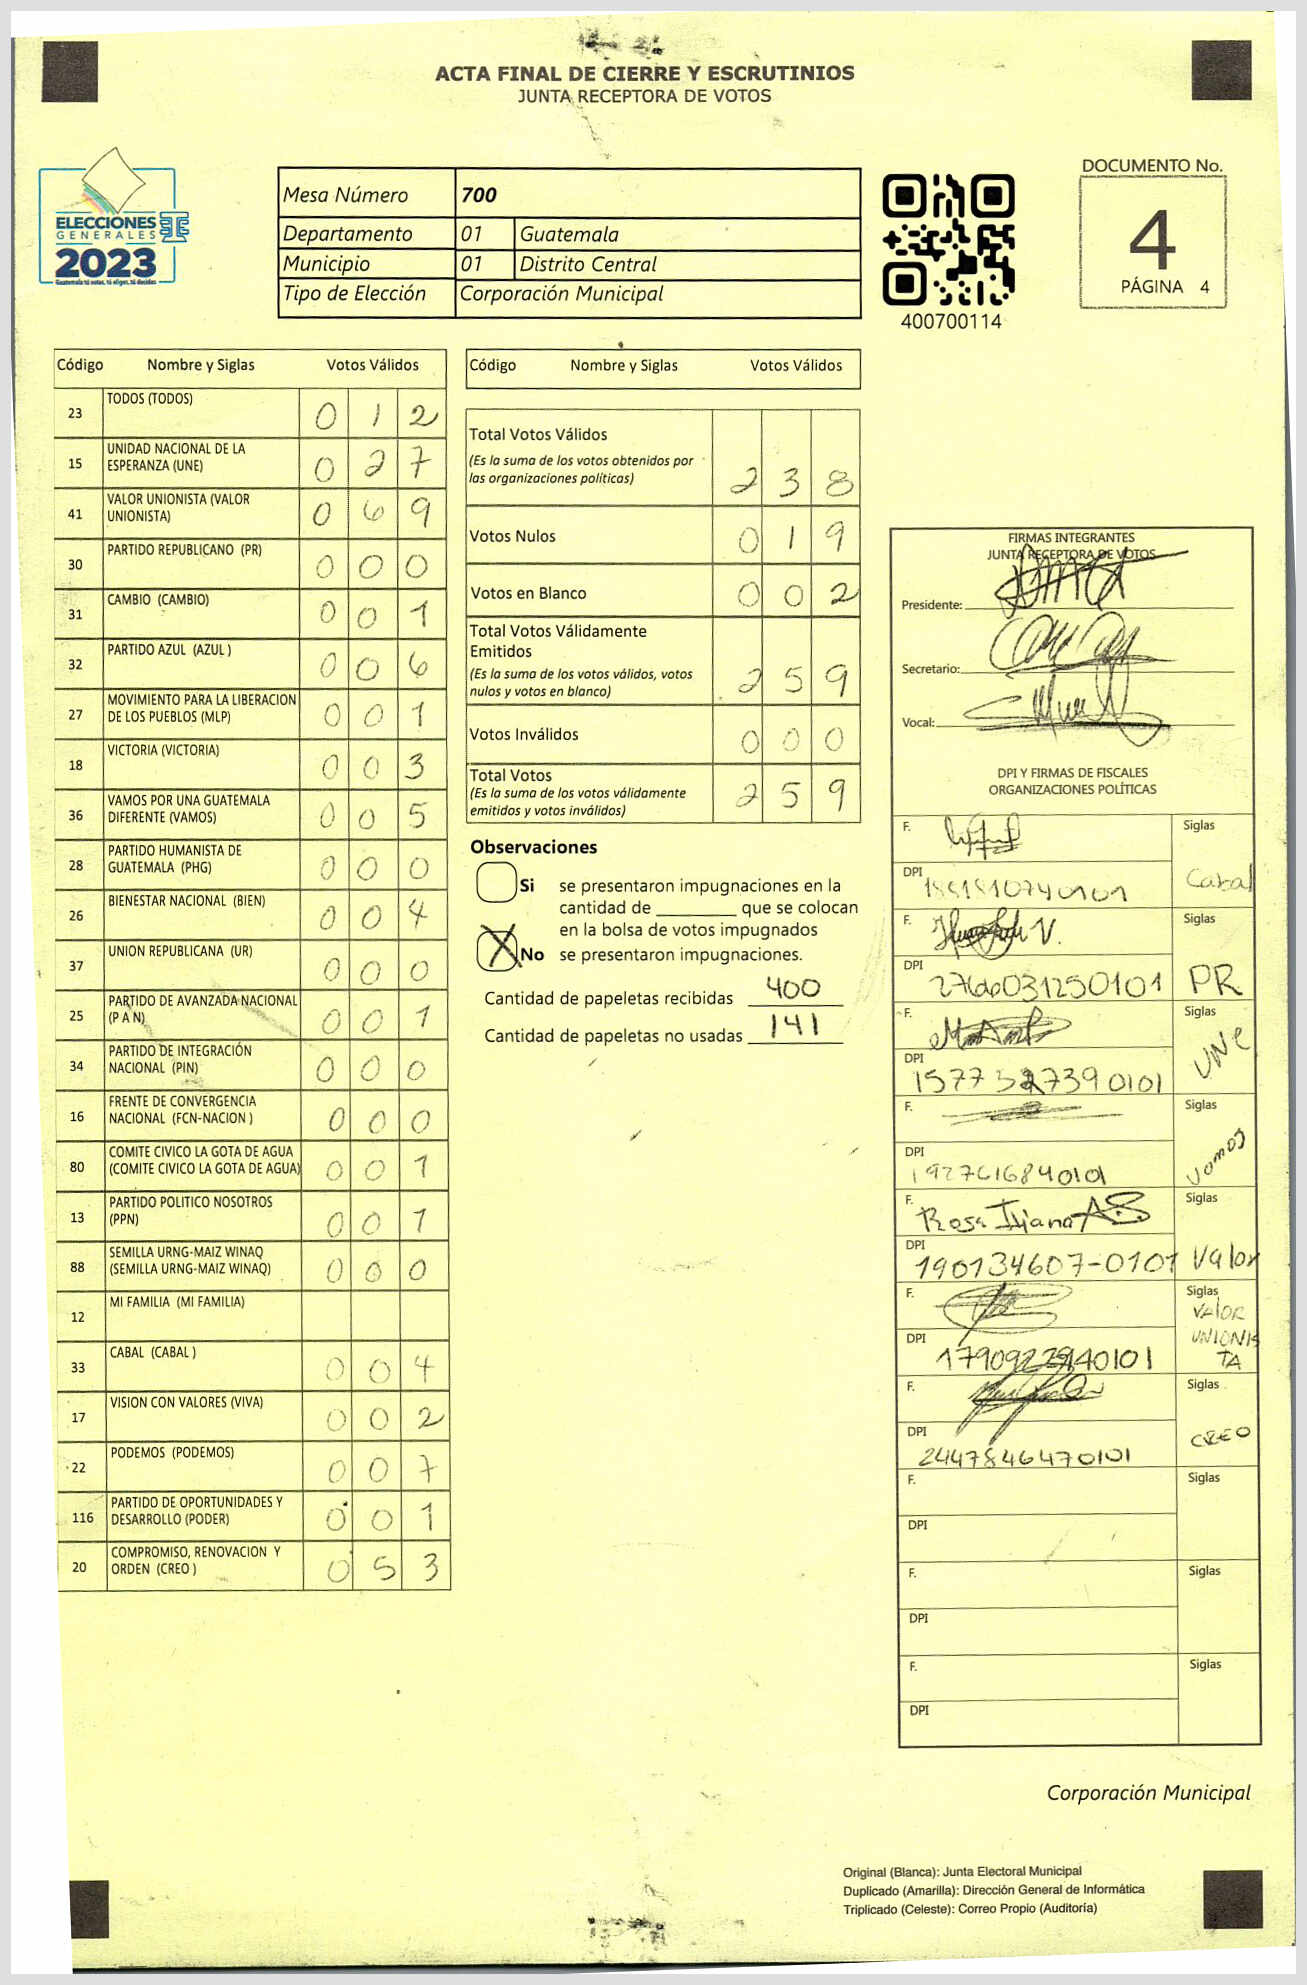 ACTA FINAL DE CIERRE Y ESCRUTINIOS
JUNTA RECEPTORA DE VOTOS
ELECCIONES
GENERALES
2023
Guatemala tú votas, tú eliges, tú decides
Mesa Número 700
Departamento 01 Guatemala
Municipio 01 Distrito Central
Tipo de Elección Corporación Municipal
400700114
DOCUMENTO No.
4
PÁGINA 4
Código Nombre y Siglas Votos Válidos
23 TODOS (TODOS) 0 1 2
15 UNIDAD NACIONAL DE LA
ESPERANZA (UNE) 0 2 7
41 VALOR UNIONISTA (VALOR
UNIONISTA) 0 6 9
30 PARTIDO REPUBLICANO (PR) 0 0 0
31 CAMBIO (CAMBIO) 0 0 1
32 PARTIDO AZUL (AZUL ) 0 0 6
27 MOVIMIENTO PARA LA LIBERACION
DE LOS PUEBLOS (MLP) 0 0 1
18 VICTORIA (VICTORIA) 0 0 3
36 VAMOS POR UNA GUATEMALA
DIFERENTE (VAMOS) 0 0 5
28 PARTIDO HUMANISTA DE
GUATEMALA (PHG) 0 0 0
26 BIENESTAR NACIONAL (BIEN) 0 0 4
37 UNION REPUBLICANA (UR) 0 0 0
25 PARTIDO DE AVANZADA NACIONAL
(P A N) 0 0 1
34 PARTIDO DE INTEGRACIÓN
NACIONAL (PIN) 0 0 0
16 FRENTE DE CONVERGENCIA
NACIONAL (FCN-NACION ) 0 0 0
80 COMITE CIVICO LA GOTA DE AGUA
(COMITE CIVICO LA GOTA DE AGUA) 0 0 1
13 PARTIDO POLITICO NOSOTROS
(PPN) 0 0 1
88 SEMILLA URNG-MAIZ WINAQ
(SEMILLA URNG-MAIZ WINAQ) 0 0 0
12 MI FAMILIA (MI FAMILIA)
33 CABAL (CABAL ) 0 0 4
17 VISION CON VALORES (VIVA) 0 0 2
22 PODEMOS (PODEMOS) 0 0 7
116 PARTIDO DE OPORTUNIDADES Y
DESARROLLO (PODER) 0 0 1
20 COMPROMISO, RENOVACION Y
ORDEN (CREO ) 0 5 3
Código Nombre y Siglas Votos Válidos
Total Votos Válidos
(Es la suma de los votos obtenidos por
las organizaciones políticas) 2 3 8
Votos Nulos 0 1 9
Votos en Blanco 0 0 2
Total Votos Válidamente
Emitidos
(Es la suma de los votos válidos, votos
nulos y votos en blanco) 2 5 9
Votos Inválidos 0 0 0
Total Votos
(Es la suma de los votos válidamente
emitidos y votos inválidos) 2 5 9
Observaciones
Si se presentaron impugnaciones en la
cantidad de ________ que se colocan
en la bolsa de votos impugnados
X No se presentaron impugnaciones.
Cantidad de papeletas recibidas 400
Cantidad de papeletas no usadas 141
FIRMAS INTEGRANTES
JUNTA RECEPTORA DE VOTOS
Presidente:
Secretario:
Vocal:
DPI Y FIRMAS DE FISCALES
ORGANIZACIONES POLÍTICAS
F. Siglas
DPI Cabal
F. Siglas
DPI 2766031250101 PR
F. Siglas
DPI UNE
F. Siglas
DPI 1927616840101 Vamos
F. Rosa Iliana A.S Siglas
DPI 190134607-0101 Valor
F. Siglas
VALOR
UNIONIS
TA
DPI
F. Siglas
DPI 2447846470101 CREO
F. Siglas
DPI
F. Siglas
DPI
F. Siglas
DPI
Corporación Municipal
Original (Blanca): Junta Electoral Municipal
Duplicado (Amarilla): Dirección General de Informática
Triplicado (Celeste): Correo Propio (Auditoría)